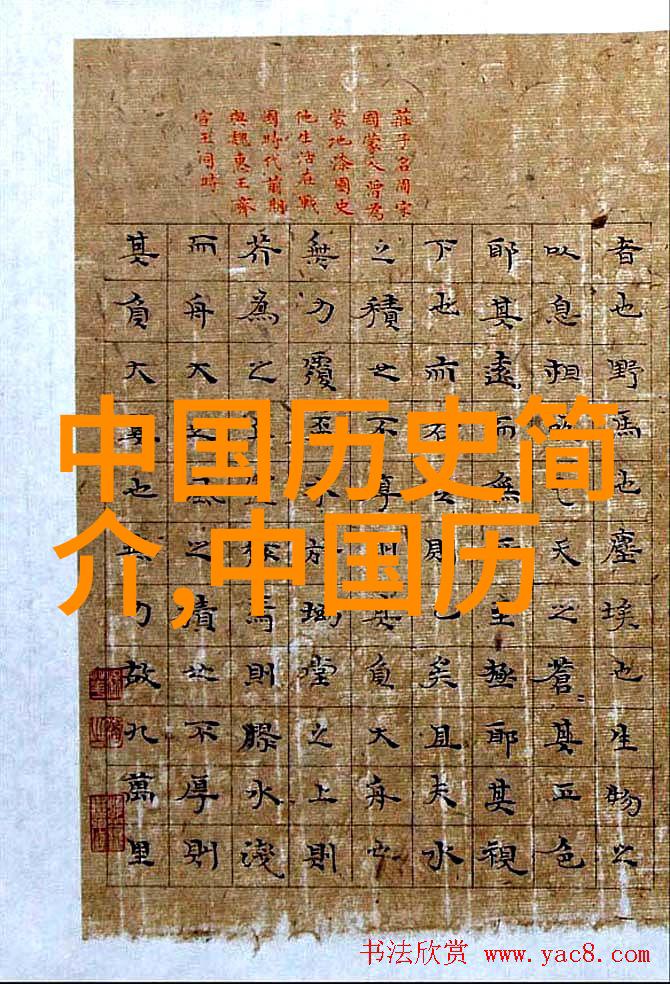 莊子名周宋
國蒙人曾為
蒙地漆園史
他生活在戰
國時代前期
與魏惠王齊
宣王同時
者也野馬也塵埃也生物之
以息相吹也天之蒼〻其正色
耶其遠而無所至極耶其視
下也而若是則已矣且夫水
之積也不厚則其負大舟也
無力覆盃水於坳堂之上則
芥為之舟置杯焉則膠水淺
而舟大也風之積也不厚則
其負大翼也無力故九萬里
中国历史简
介,中国历
书法欣赏 www.yac8.com